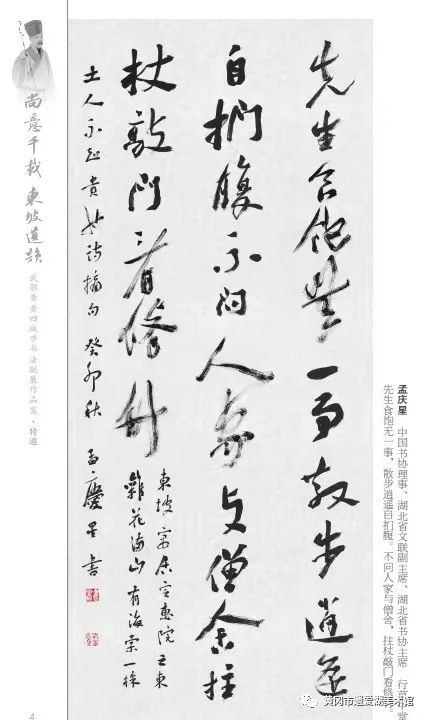 先生食飽無一事散步逍遥
自捫腹不問人家与僧舍拄
杖敲門看修竹
東坡寓居定惠院之東
雜花滿山有海棠一株
土人不知貴也詩摘句 癸卯秋 孟慶星書
孟庆星 中国书协理事、湖北省文联副主席、湖北省书协主席 行草中堂
先生食饱无一事，散步逍遥自扪腹。不问人家与僧舍，拄杖敲门看修
尚意千载 東坡遺韻
武鄂黄黄四城市书法联展作品集·特邀
4
黄冈市遗爱湖美术馆